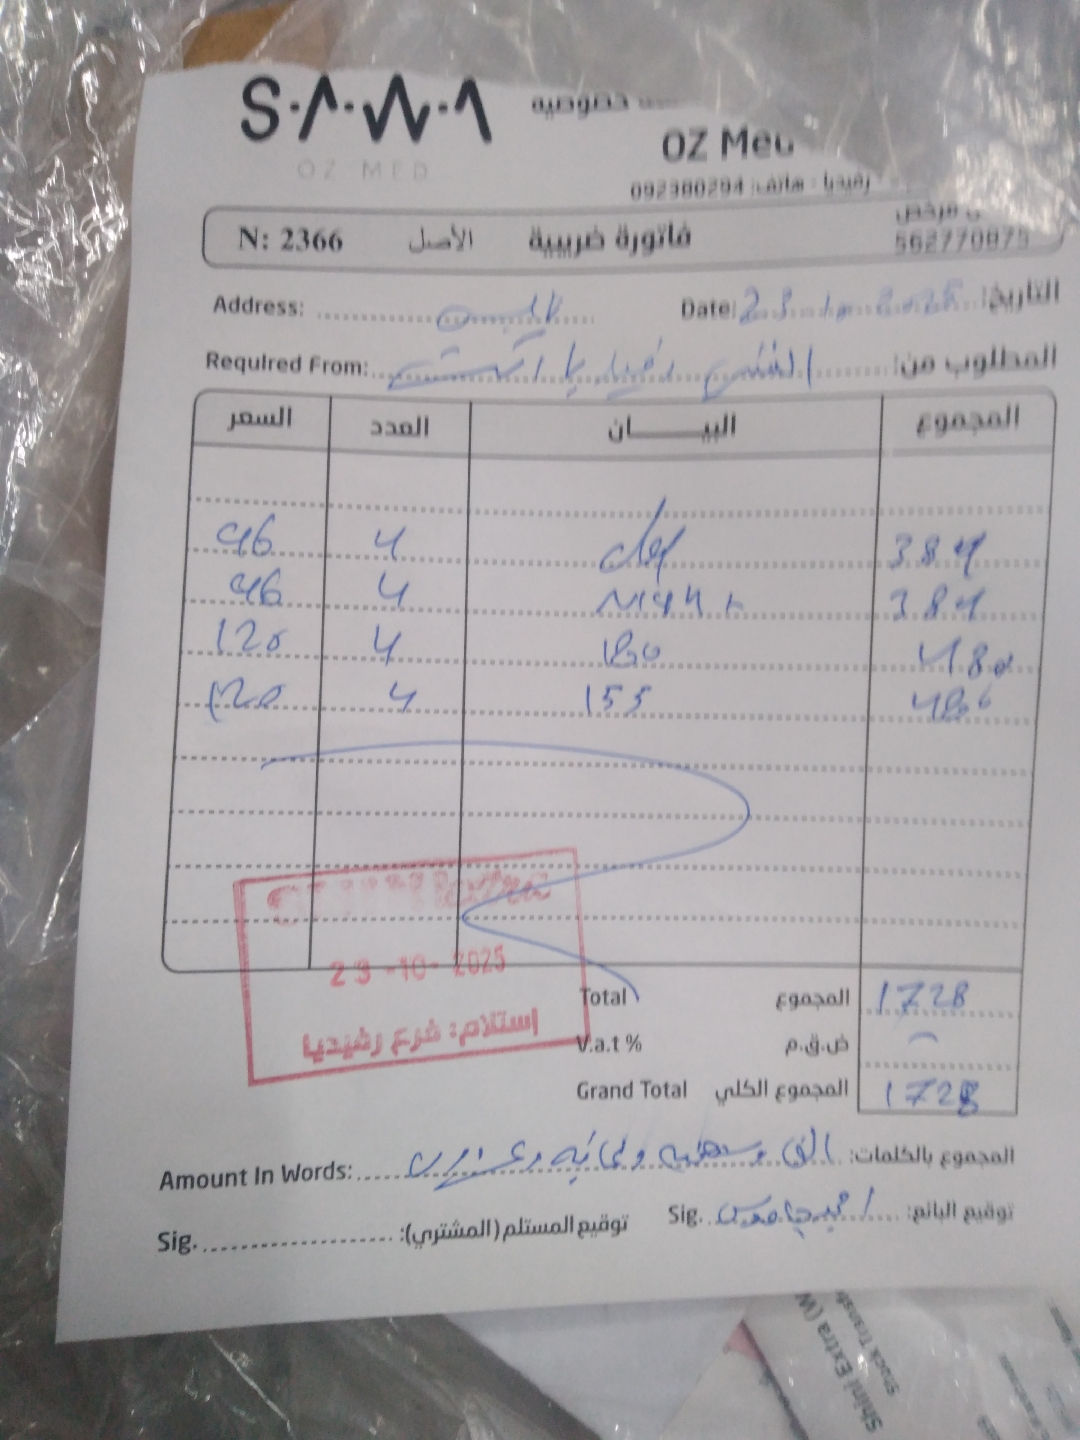 S·Λ·W·Λ
OZ MED
خصوصية
OZ Med
رفيديا - هاتف: 092380294
562770875
N: 2366 الأصل فاتورة ضريبية
Address: Date: 23 10 2025 التاريخ:
Required From: المطلوب من:
السعر العدد البيـــــان المجموع
96 4 384
96 4 384
120 4 180 480
120 4 155 480
23-10-2025
إستلام: فرع رفيديا
Total المجموع 1728
V.a.t % ض.ق.م
Grand Total المجموع الكلي 1728
Amount In Words: الف وسبعمائة وثمانية وعشرون المجموع بالكلمات:
Sig. توقيع المستلم (المشتري): Sig. توقيع البائع:
Shini Extra (W
Stock Transf